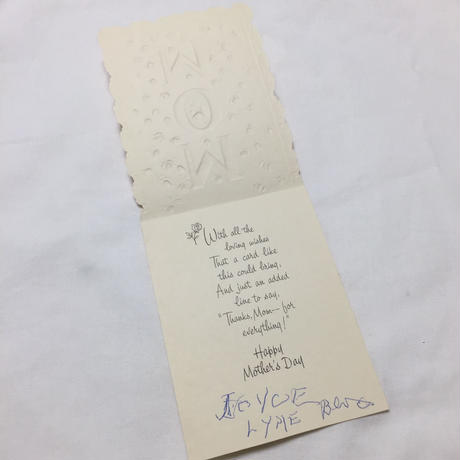 MOM
With all the
loving wishes
That a card like
this could bring,
And just an added
line to say,
"Thanks, Mom— for
everything!"
Happy
Mother's Day
JOYCE